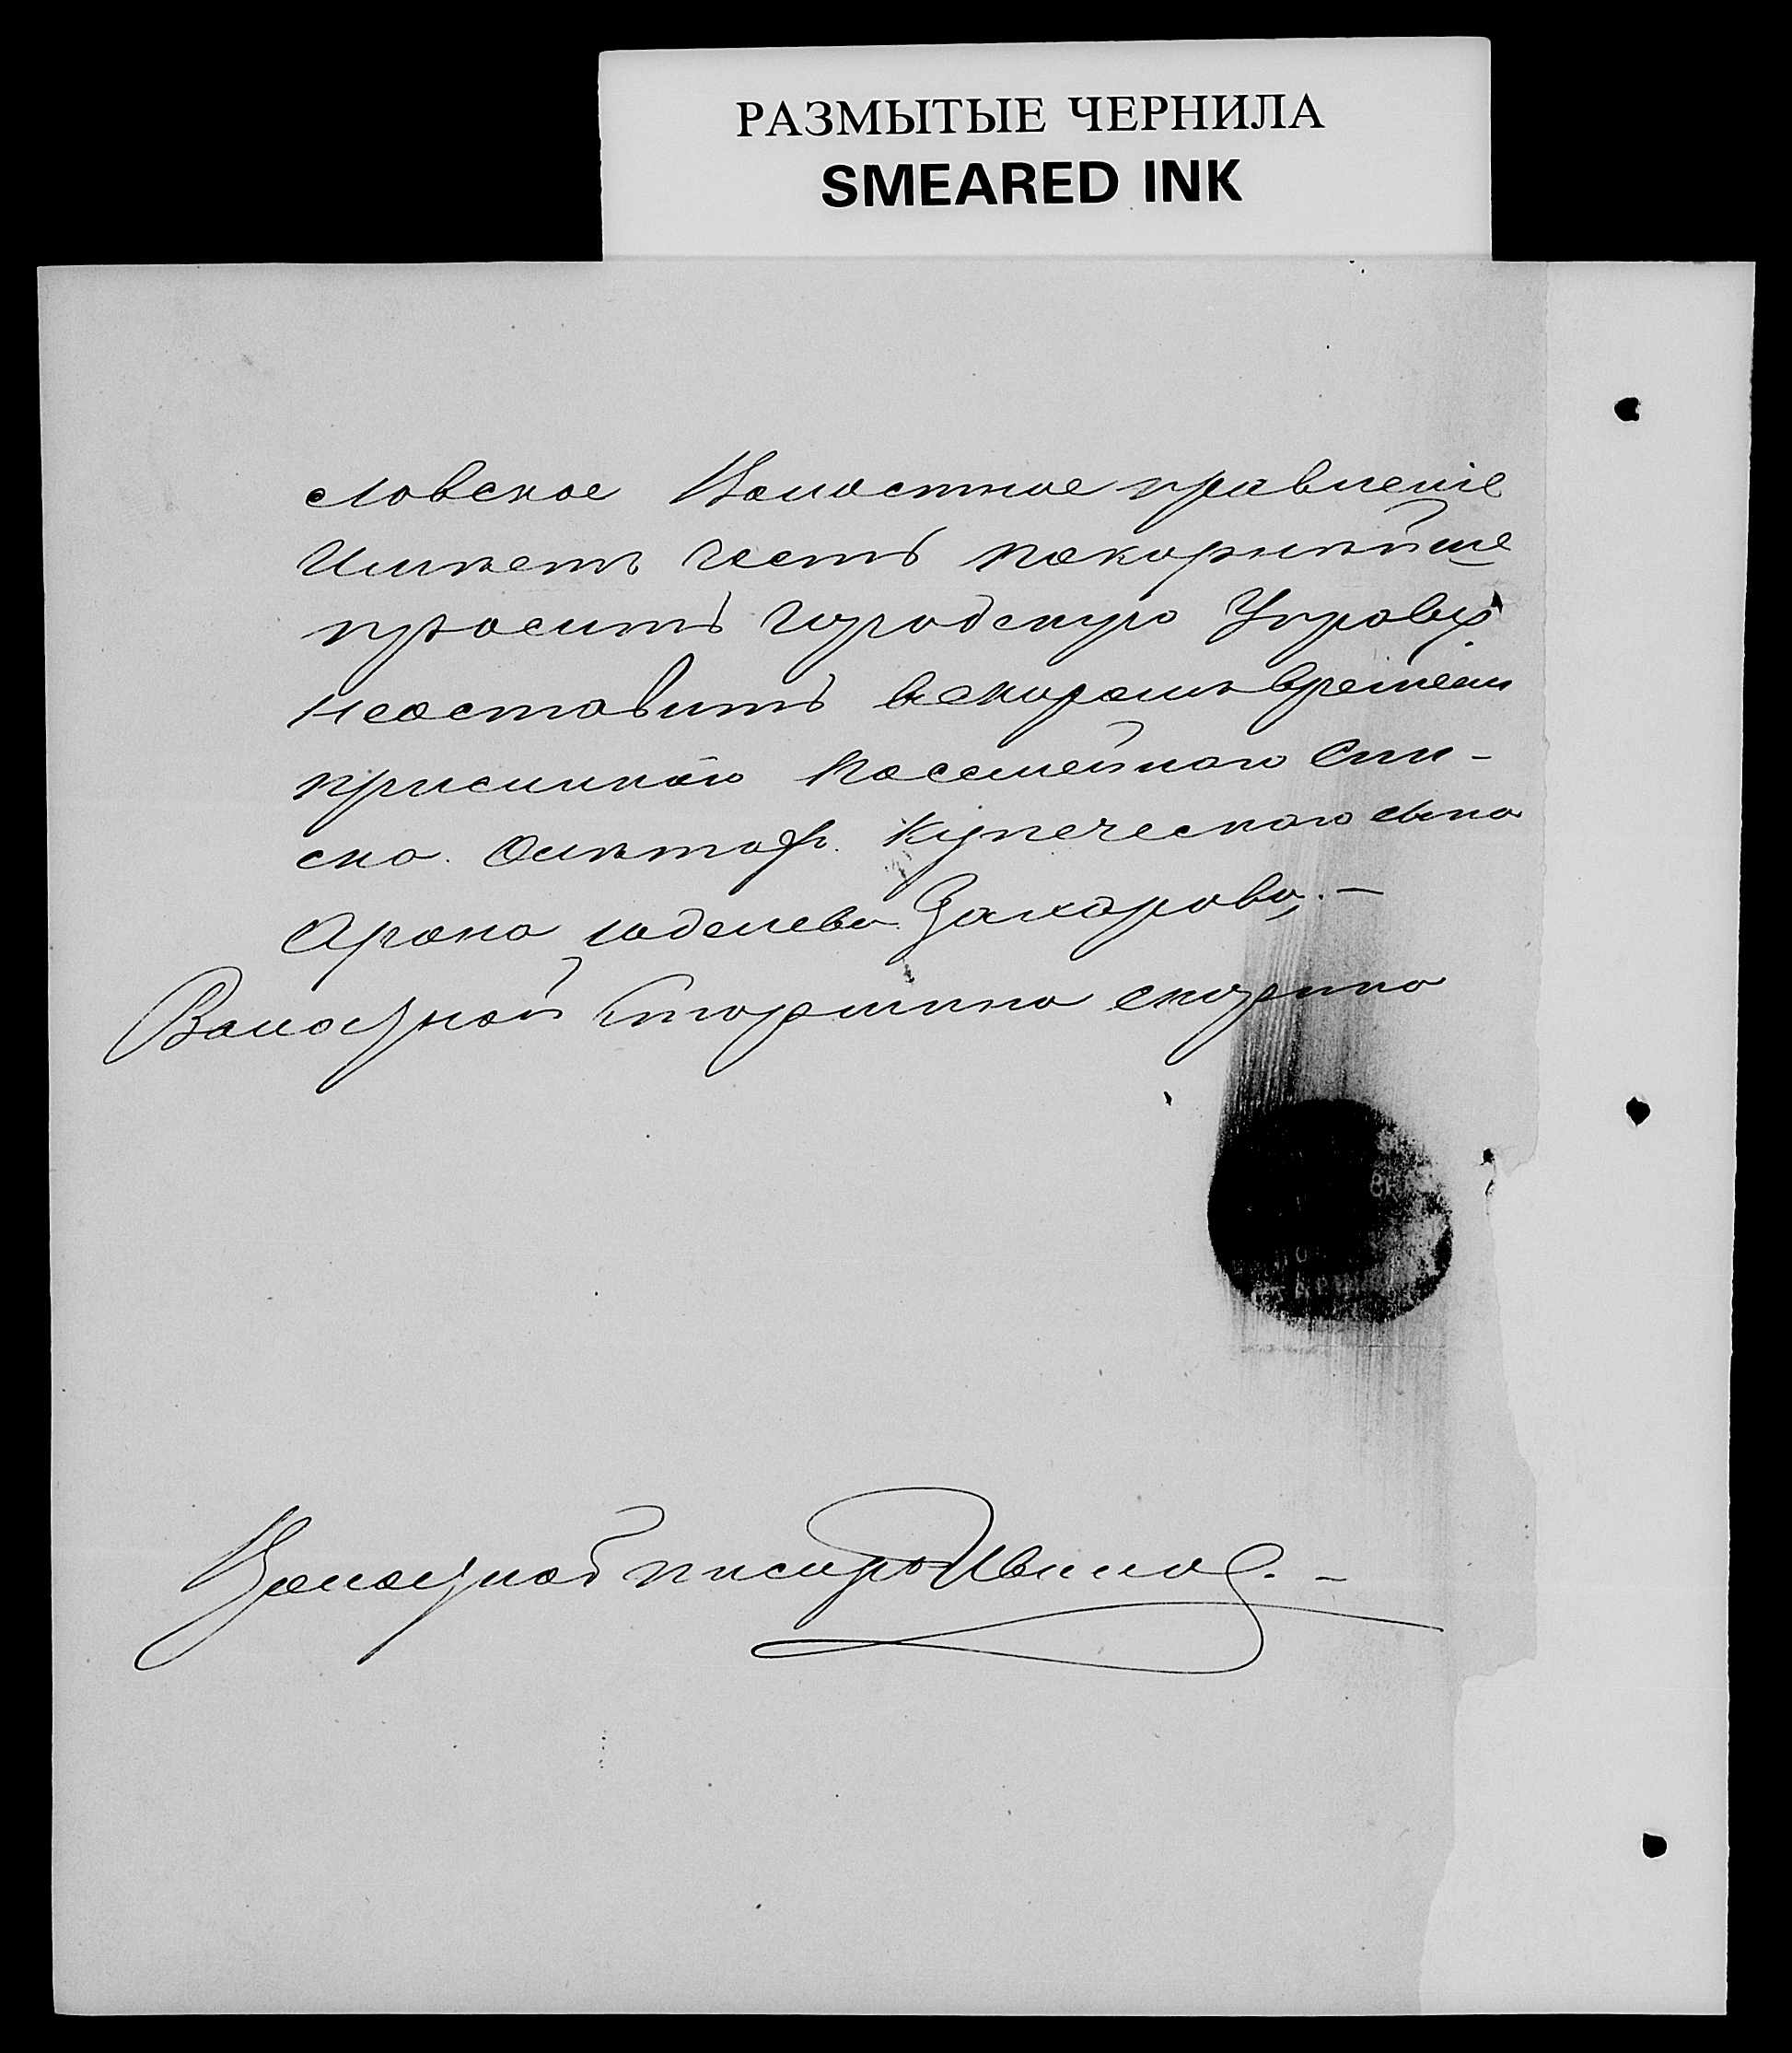 РАЗМЫТЫЕ ЧЕРНИЛА
SMEARED INK
словское Волостное правленіе
Имѣетъ честь покорнѣйше
просить Городскую Управу
неоставить вскоромъ времени
присылкою посемейнаго спи-
ска Купеческого сына
Арона Іоделева Захарова. —
Волостной Старшина
Волостной писарь